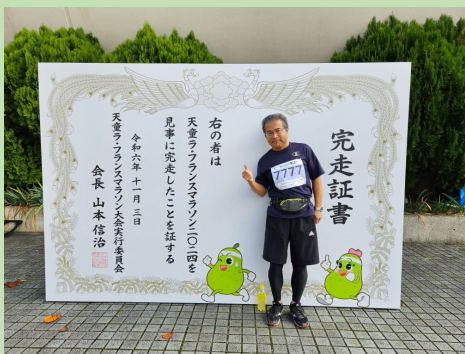 完走証書
7777
右の者は
天童ラ・フランスマラソン二〇二四を
見事に完走したことを証する
令和六年 十一月 三日
天童ラ・フランスマラソン大会実行委員会
会長 山本信治